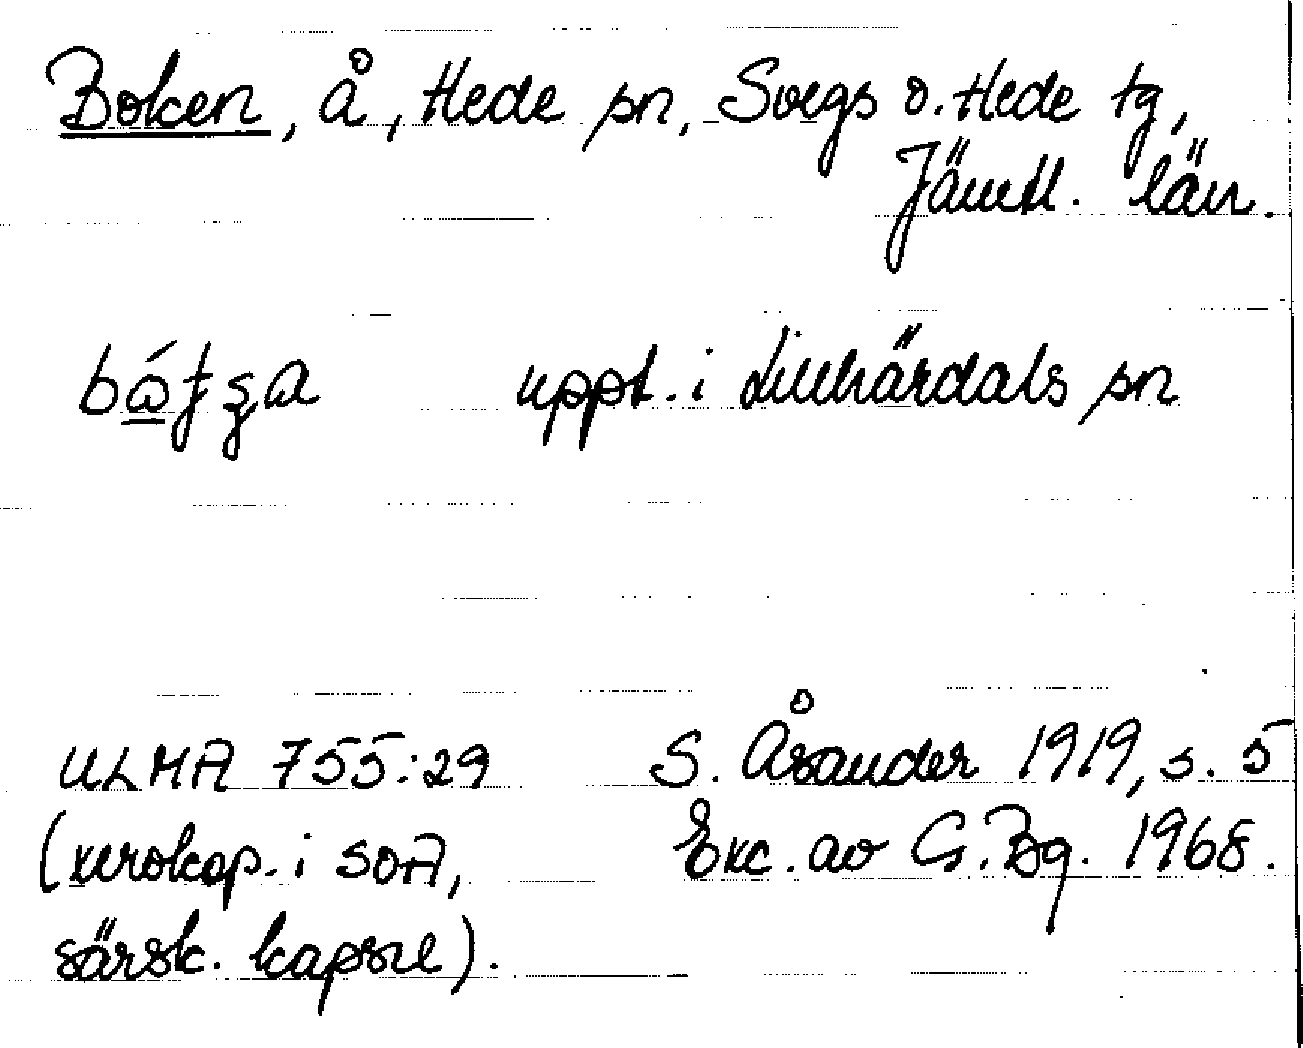 Boken, å, Hede sn, Svegs o. Hede tg,
Jämtl. län.
uppt. i Lillhärdals sn
ULMA 755:29 S. Åsander 1919, s. 5
(xerokop. i SOA, Exc. av G. Bg. 1968.
särsk. kapsel).